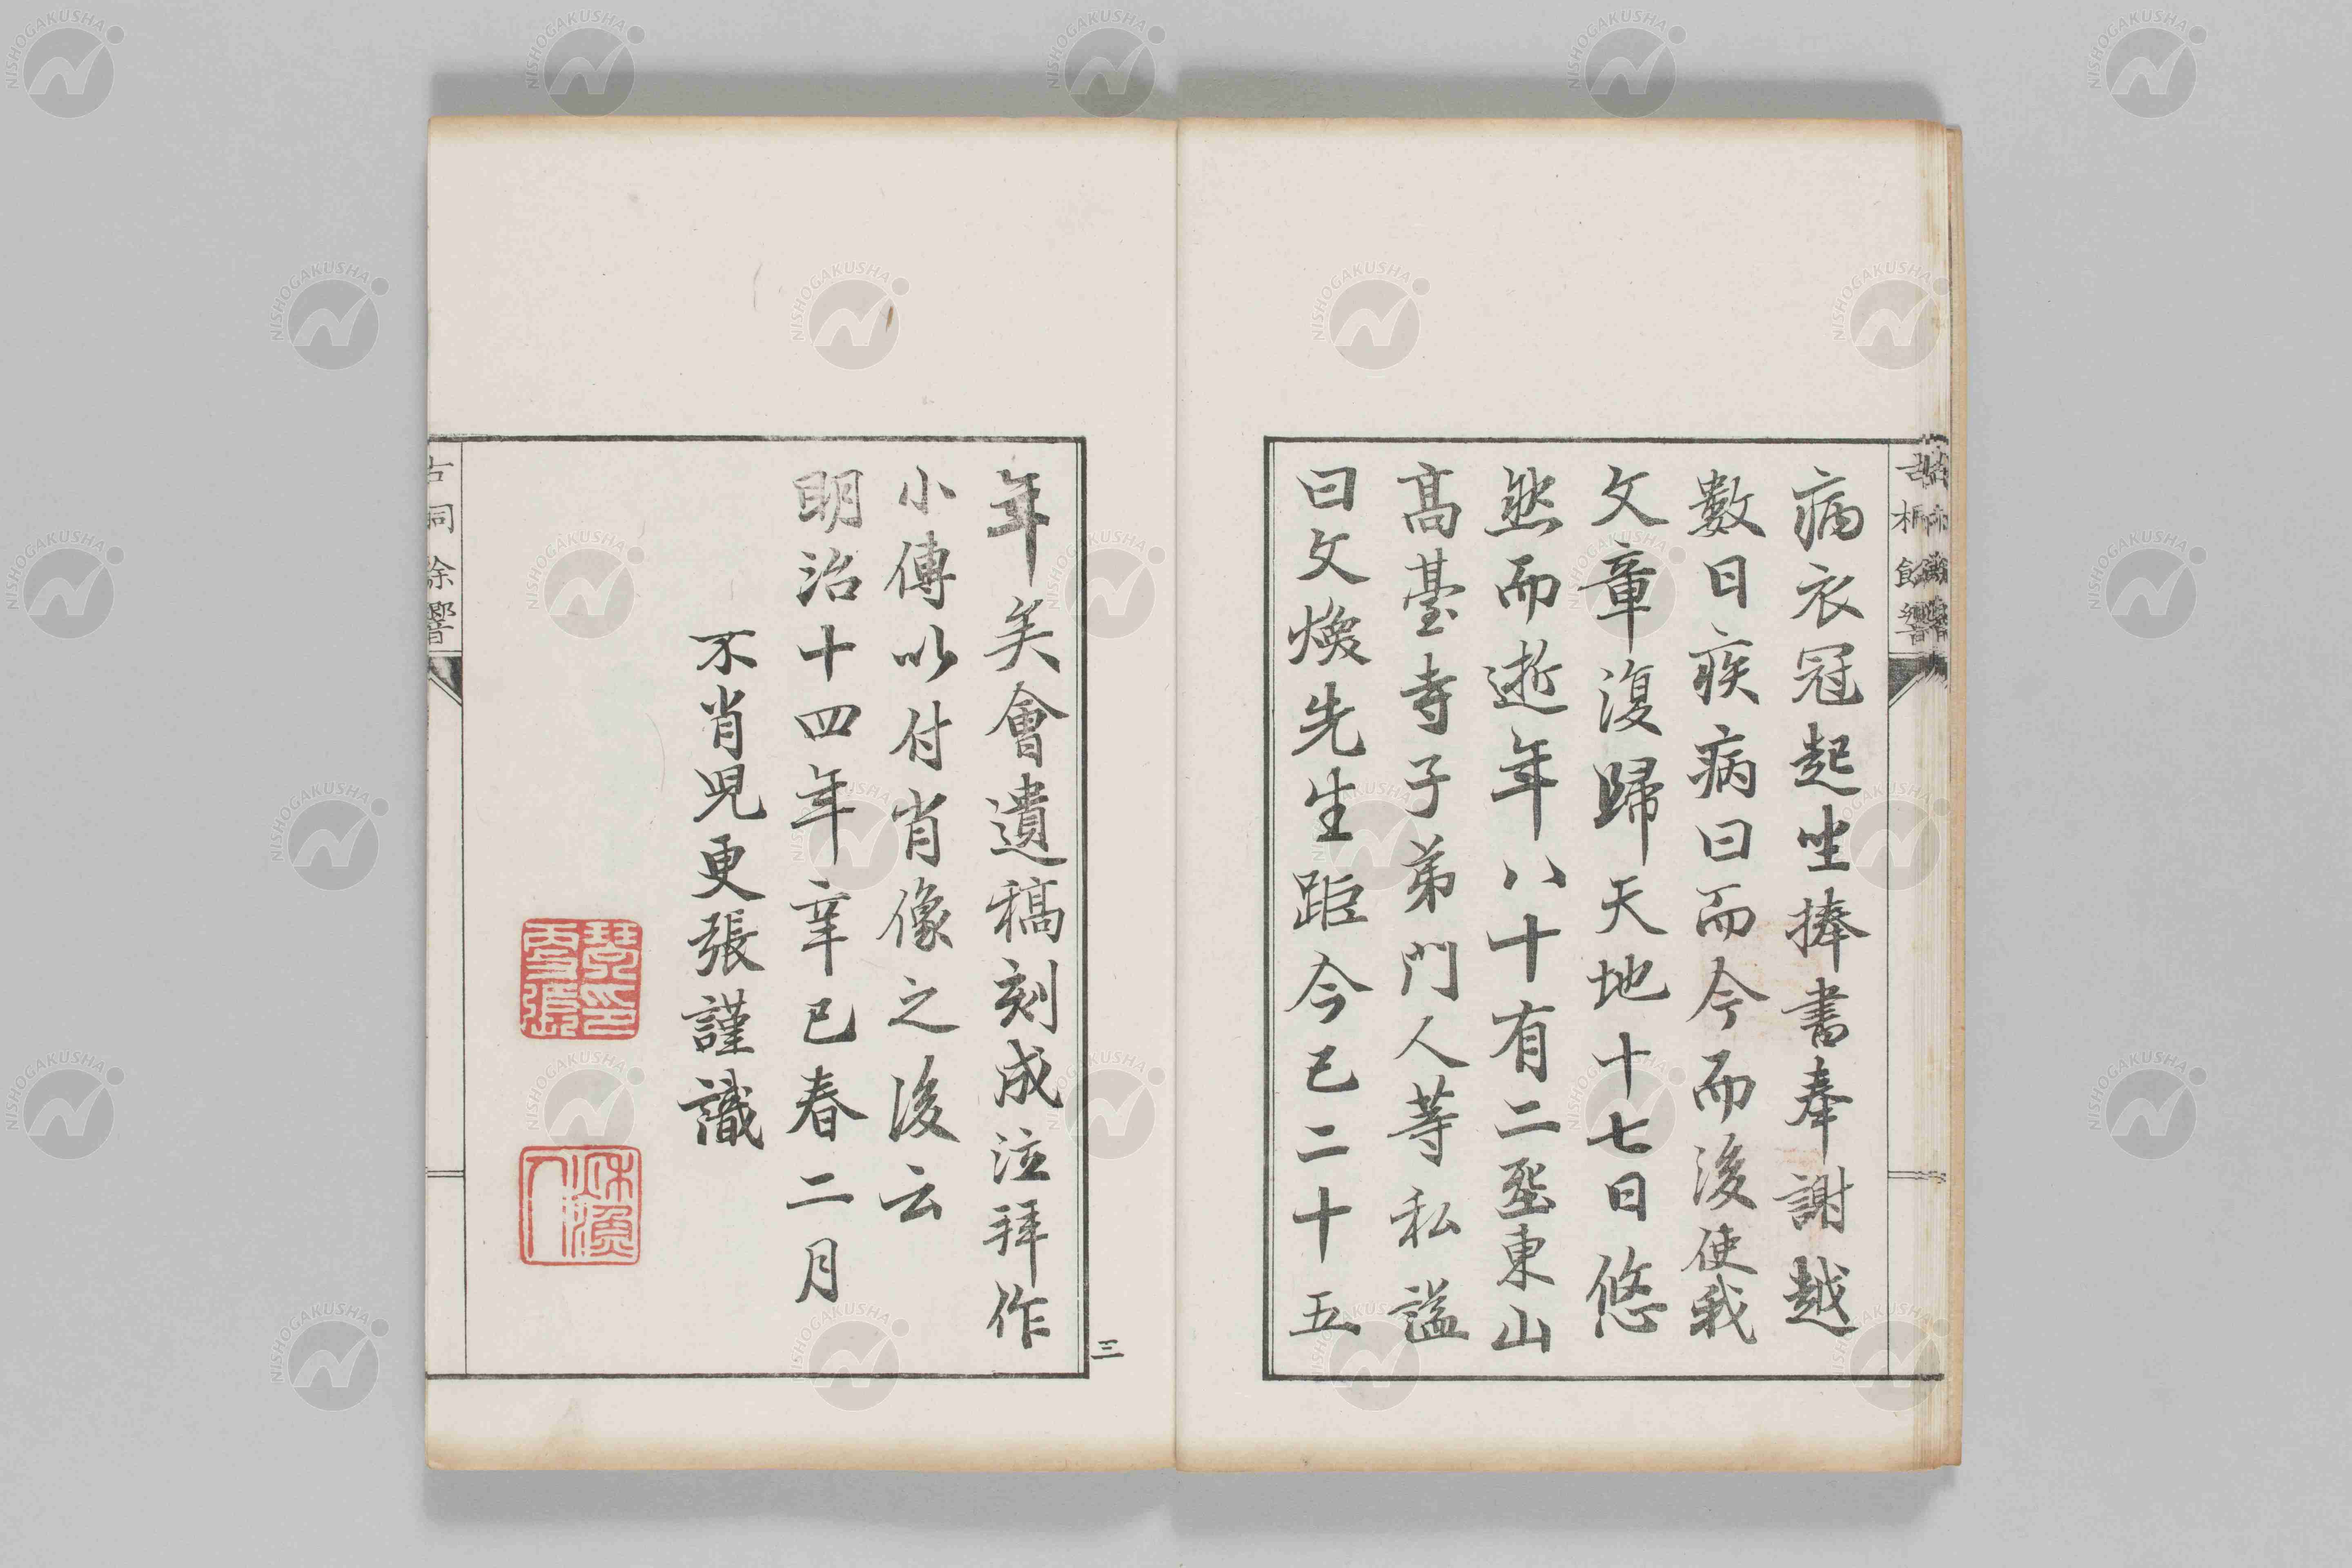 病衣冠起坐捧書奉謝越
數日疾病曰而今而後使我
文章復歸天地十七日悠
然而逝年八十有二塟東山
髙臺寺子弟門人等私諡
曰文煥先生距今已二十五
年矣會遺稿刻成泣拜作
小傳以付肖像之後云
明治十四年辛巳春二月
不肖児更張謹識
三
NISHOGAKUSHA